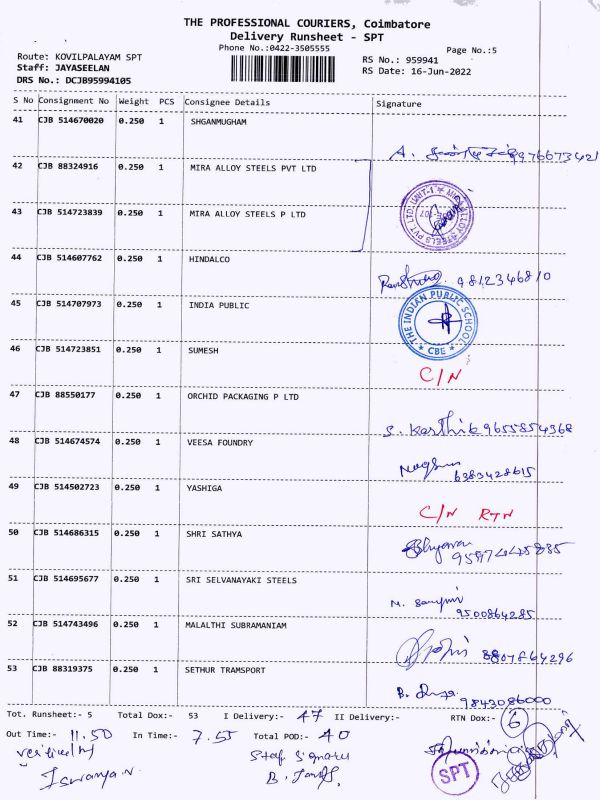 THE PROFESSIONAL COURIERS, Coimbatore
Delivery Runsheet - SPT
Phone No.:0422-3505555
Page No.:5
Route: KOVILPALAYAM SPT
Staff: JAYASEELAN
DRS No.: DCJB95994105
RS No.: 959941
RS Date: 16-Jun-2022
S No Consignment No Weight PCS Consignee Details Signature
41 CJB 514670020 0.250 1 SHGANMUGHAM
A. 9976673421
42 CJB 88324916 0.250 1 MIRA ALLOY STEELS PVT LTD
43 CJB 514723839 0.250 1 MIRA ALLOY STEELS P LTD
44 CJB 514607762 0.250 1 HINDALCO
9812346810
45 CJB 514707973 0.250 1 INDIA PUBLIC
THE INDIAN PUBLIC SCHOOL
* CBE *
46 CJB 514723851 0.250 1 SUMESH
C/N
47 CJB 88550177 0.250 1 ORCHID PACKAGING P LTD
S. Karthik 9655854368
48 CJB 514674574 0.250 1 VEESA FOUNDRY
6383428615
49 CJB 514502723 0.250 1 YASHIGA
C/N RTN
50 CJB 514686315 0.250 1 SHRI SATHYA
51 CJB 514695677 0.250 1 SRI SELVANAYAKI STEELS
M. 9500864285
52 CJB 514743496 0.250 1 MALALTHI SUBRAMANIAM
8807864296
53 CJB 88319375 0.250 1 SETHUR TRAMSPORT
B. 9843086000
Tot. Runsheet:- 5 Total Dox:- 53 I Delivery:- 47 II Delivery:- RTN Dox:- 6
Out Time:- 11.50 In Time:- 7.55 Total POD:- 40
verified by
Iswarya.v.
B.
SPT